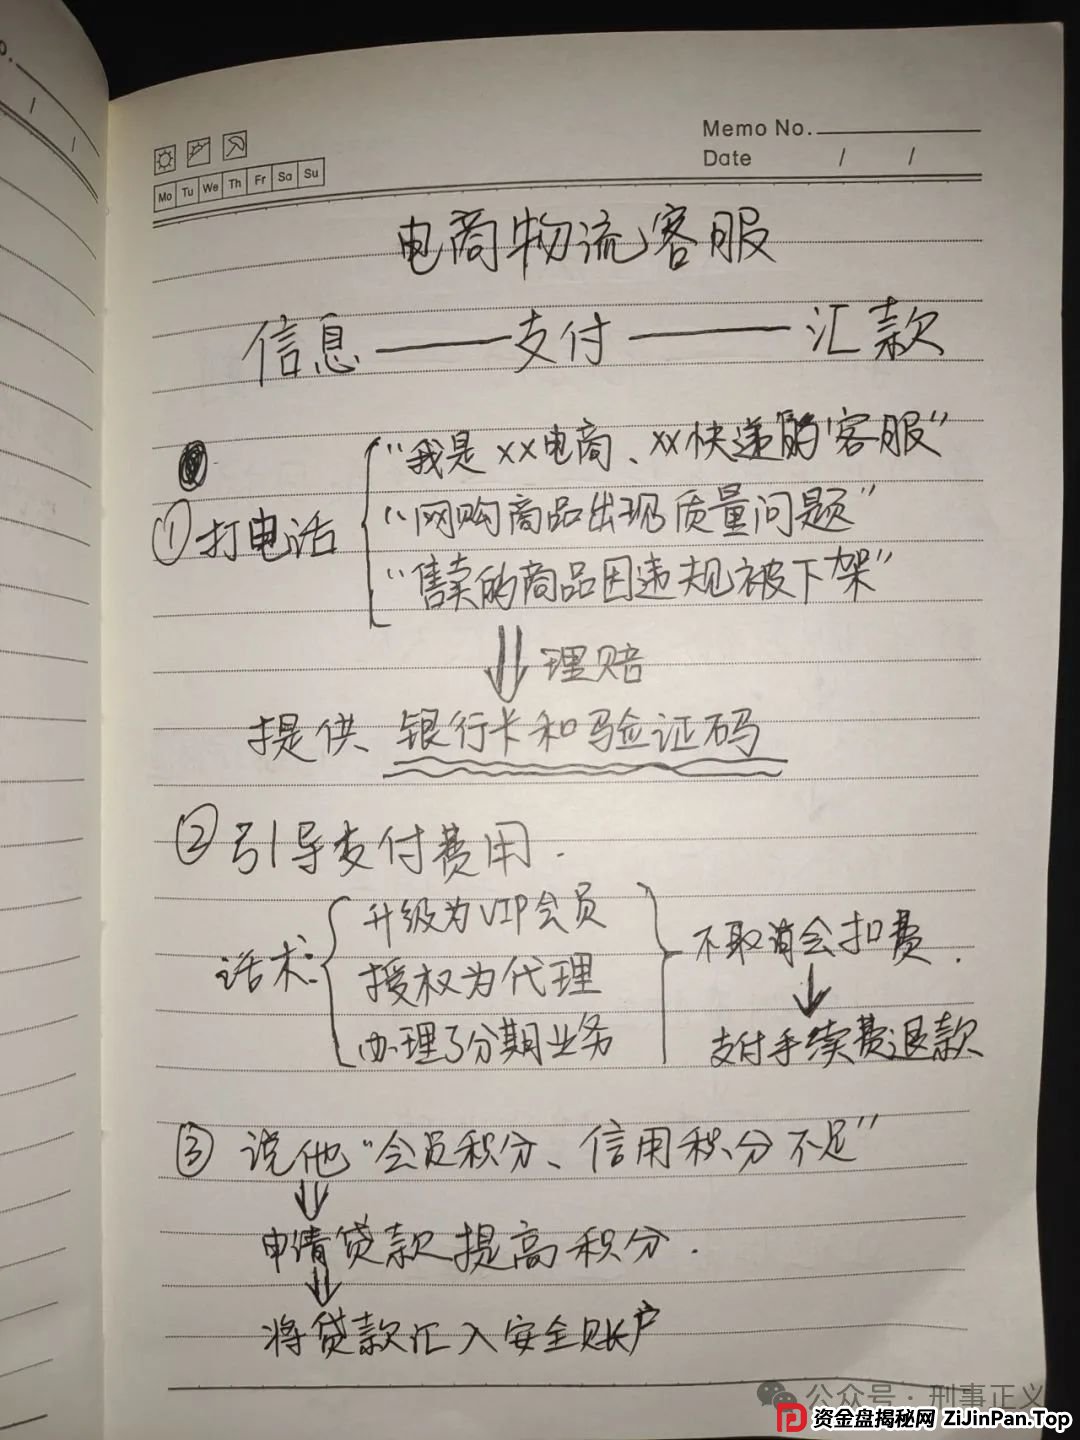 Memo No.
Date / /
Mo Tu We Th Fr Sa Su
电商物流客服
信息——支付——汇款
①打电话
"我是xx电商、xx快递的客服"
"网购商品出现质量问题"
"售卖的商品因违规被下架"
理赔
提供银行卡和验证码
②引导支付费用.
话术:
升级为VIP会员
授权为代理
办理了分期业务
不取消会扣费.
支付手续费退款
③说他"会员积分、信用积分不足"
申请贷款提高积分.
将贷款汇入安全账户
公众号·刑事正义
资金盘揭秘网 ZiJinPan.Top